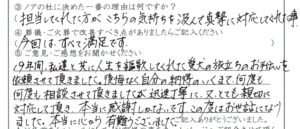 ③ノアの杜に決めた一番の理由は何ですか？
担当してくれた方がこちらの気持ちを汲んで真摯に対応してくれた事
④葬儀・ご火葬で改善すべき点がありましたらご記入ください
今回は、すべて満足です。
⑤ご意見・ご感想をお聞かせください
19年間、私達と共に人生を謳歌してくれた愛犬の旅立ちのお手伝いを
依頼させて頂きました。後悔なく自分の納得のいくまで、何度も
何度も相談させて頂きましたが、迅速丁寧に、とても親切に
対応して頂き、本当に感謝しかないです。この度はお世話になり
ました。本当に心から有難うございました。